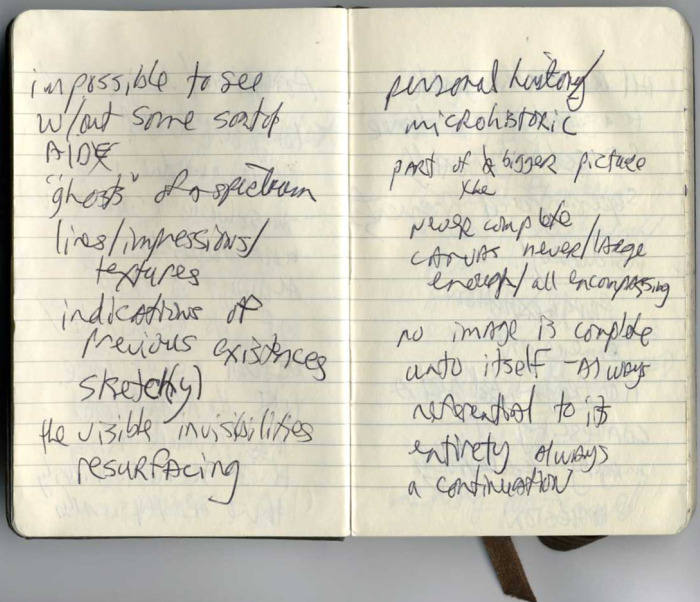 impossible to see
w/out some sort of
AIDE
"ghosts" of a spectrum
lines/impressions/
textures
indications of
previous existences
sketch(y)
the visible invisibilities
resurfacing
personal history
microhistoric
part of bigger picture
the
never complete
canvas never/large
enough/all encompassing
no image is complete
unto itself - always
referential to its
entirety always
a continuation